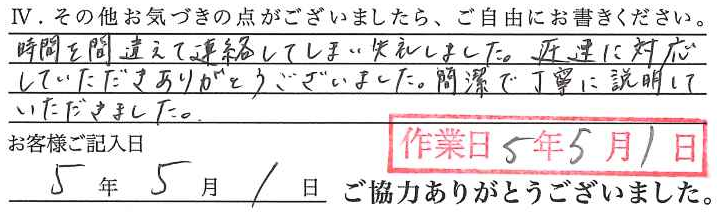 Ⅳ．その他お気づきの点がございましたら、ご自由にお書きください。
時間を間違えて連絡してしまい失礼しました。迅速に対応
していただきありがとうございました。簡潔で丁寧に説明して
いただきました。
お客様ご記入日
作業日 5年5月1日
5年5月1日 ご協力ありがとうございました。